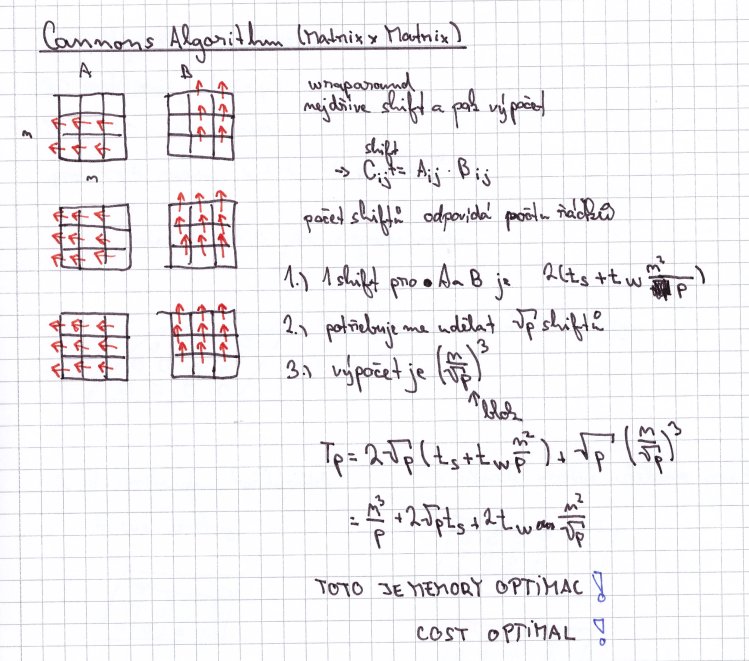 Cannons Algorithm (Matrix x Matrix)
A B
wraparound
nejdříve shift a pak výpočet
m
shift
→ C_ij += A_ij · B_ij
m
počet shiftů odpovídá počtu řádků
1.) 1 shift pro A a B je 2(t_s + t_w m²/p)
2.) potřebujeme udělat √p shiftů
3.) výpočet je (m/√p)³
↑ blok
T_p = 2√p (t_s + t_w m²/p) + √p (m/√p)³
= m³/p + 2√p t_s + 2 t_w m²/√p
TOTO JE MEMORY OPTIMAL !
COST OPTIMAL !